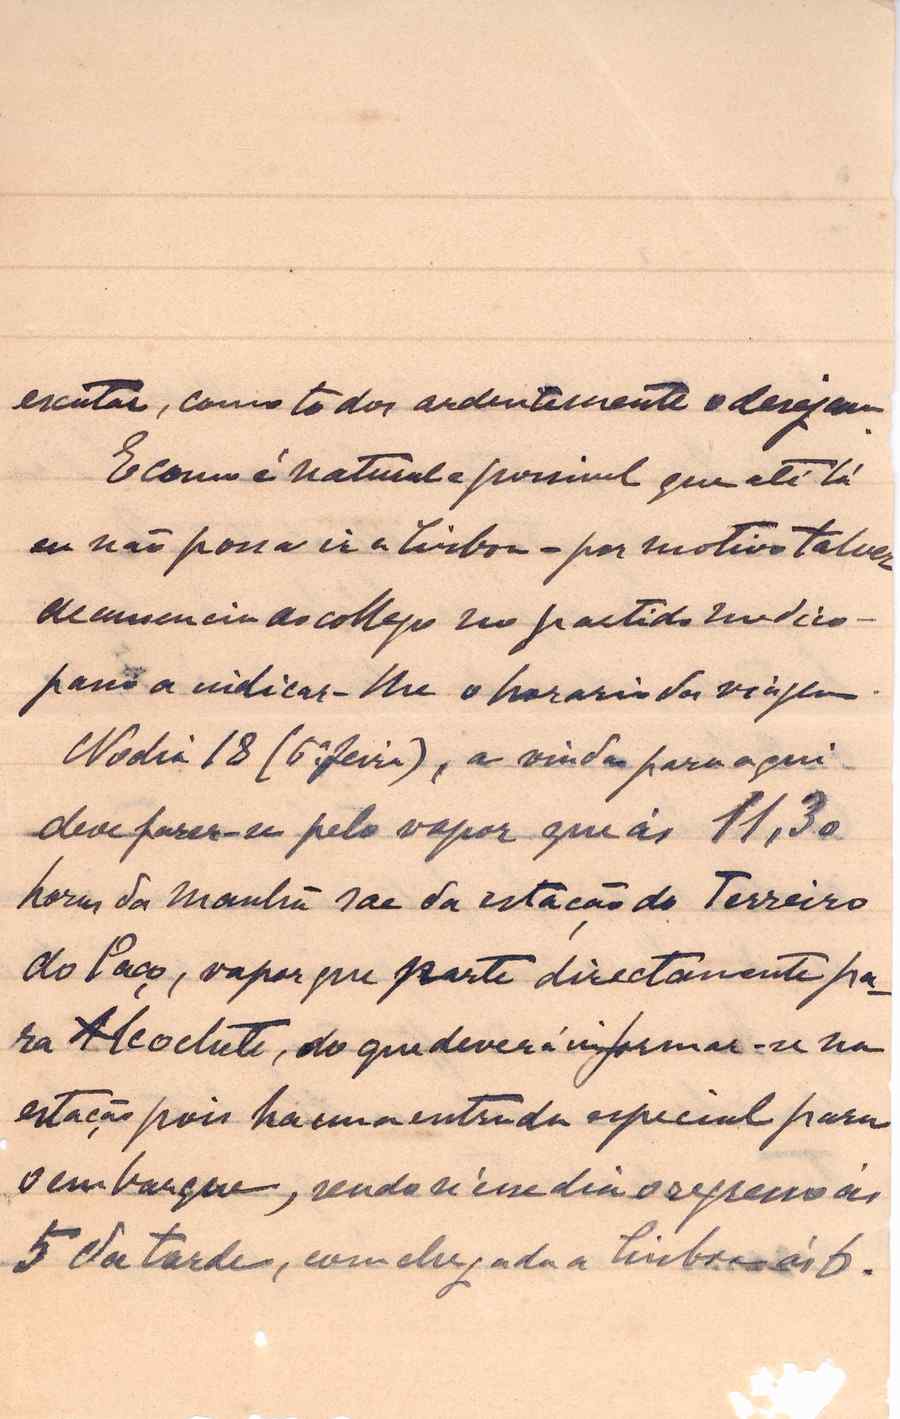 escutar, como todos ardentemente o desejam.
E como é natural e possivel que até lá
eu não possa ir a Lisboa – por motivo talvez
de ausencia do collega no partido medico –
passo a indicar-lhe o horario das viagens.
No dia 18 (6ª feira), a vinda para aqui
deve fazer-se pelo vapor que ás 11,30
horas da manhã sae da estação do Terreiro
do Paço, vapor que parte directamente pa-
ra Alcochete, do que deverá informar-se na
estação pois ha uma entrada especial para
o embarque, sendo n'esse dia o regresso ás
5 da tarde, com chegada a Lisboa ás 6.